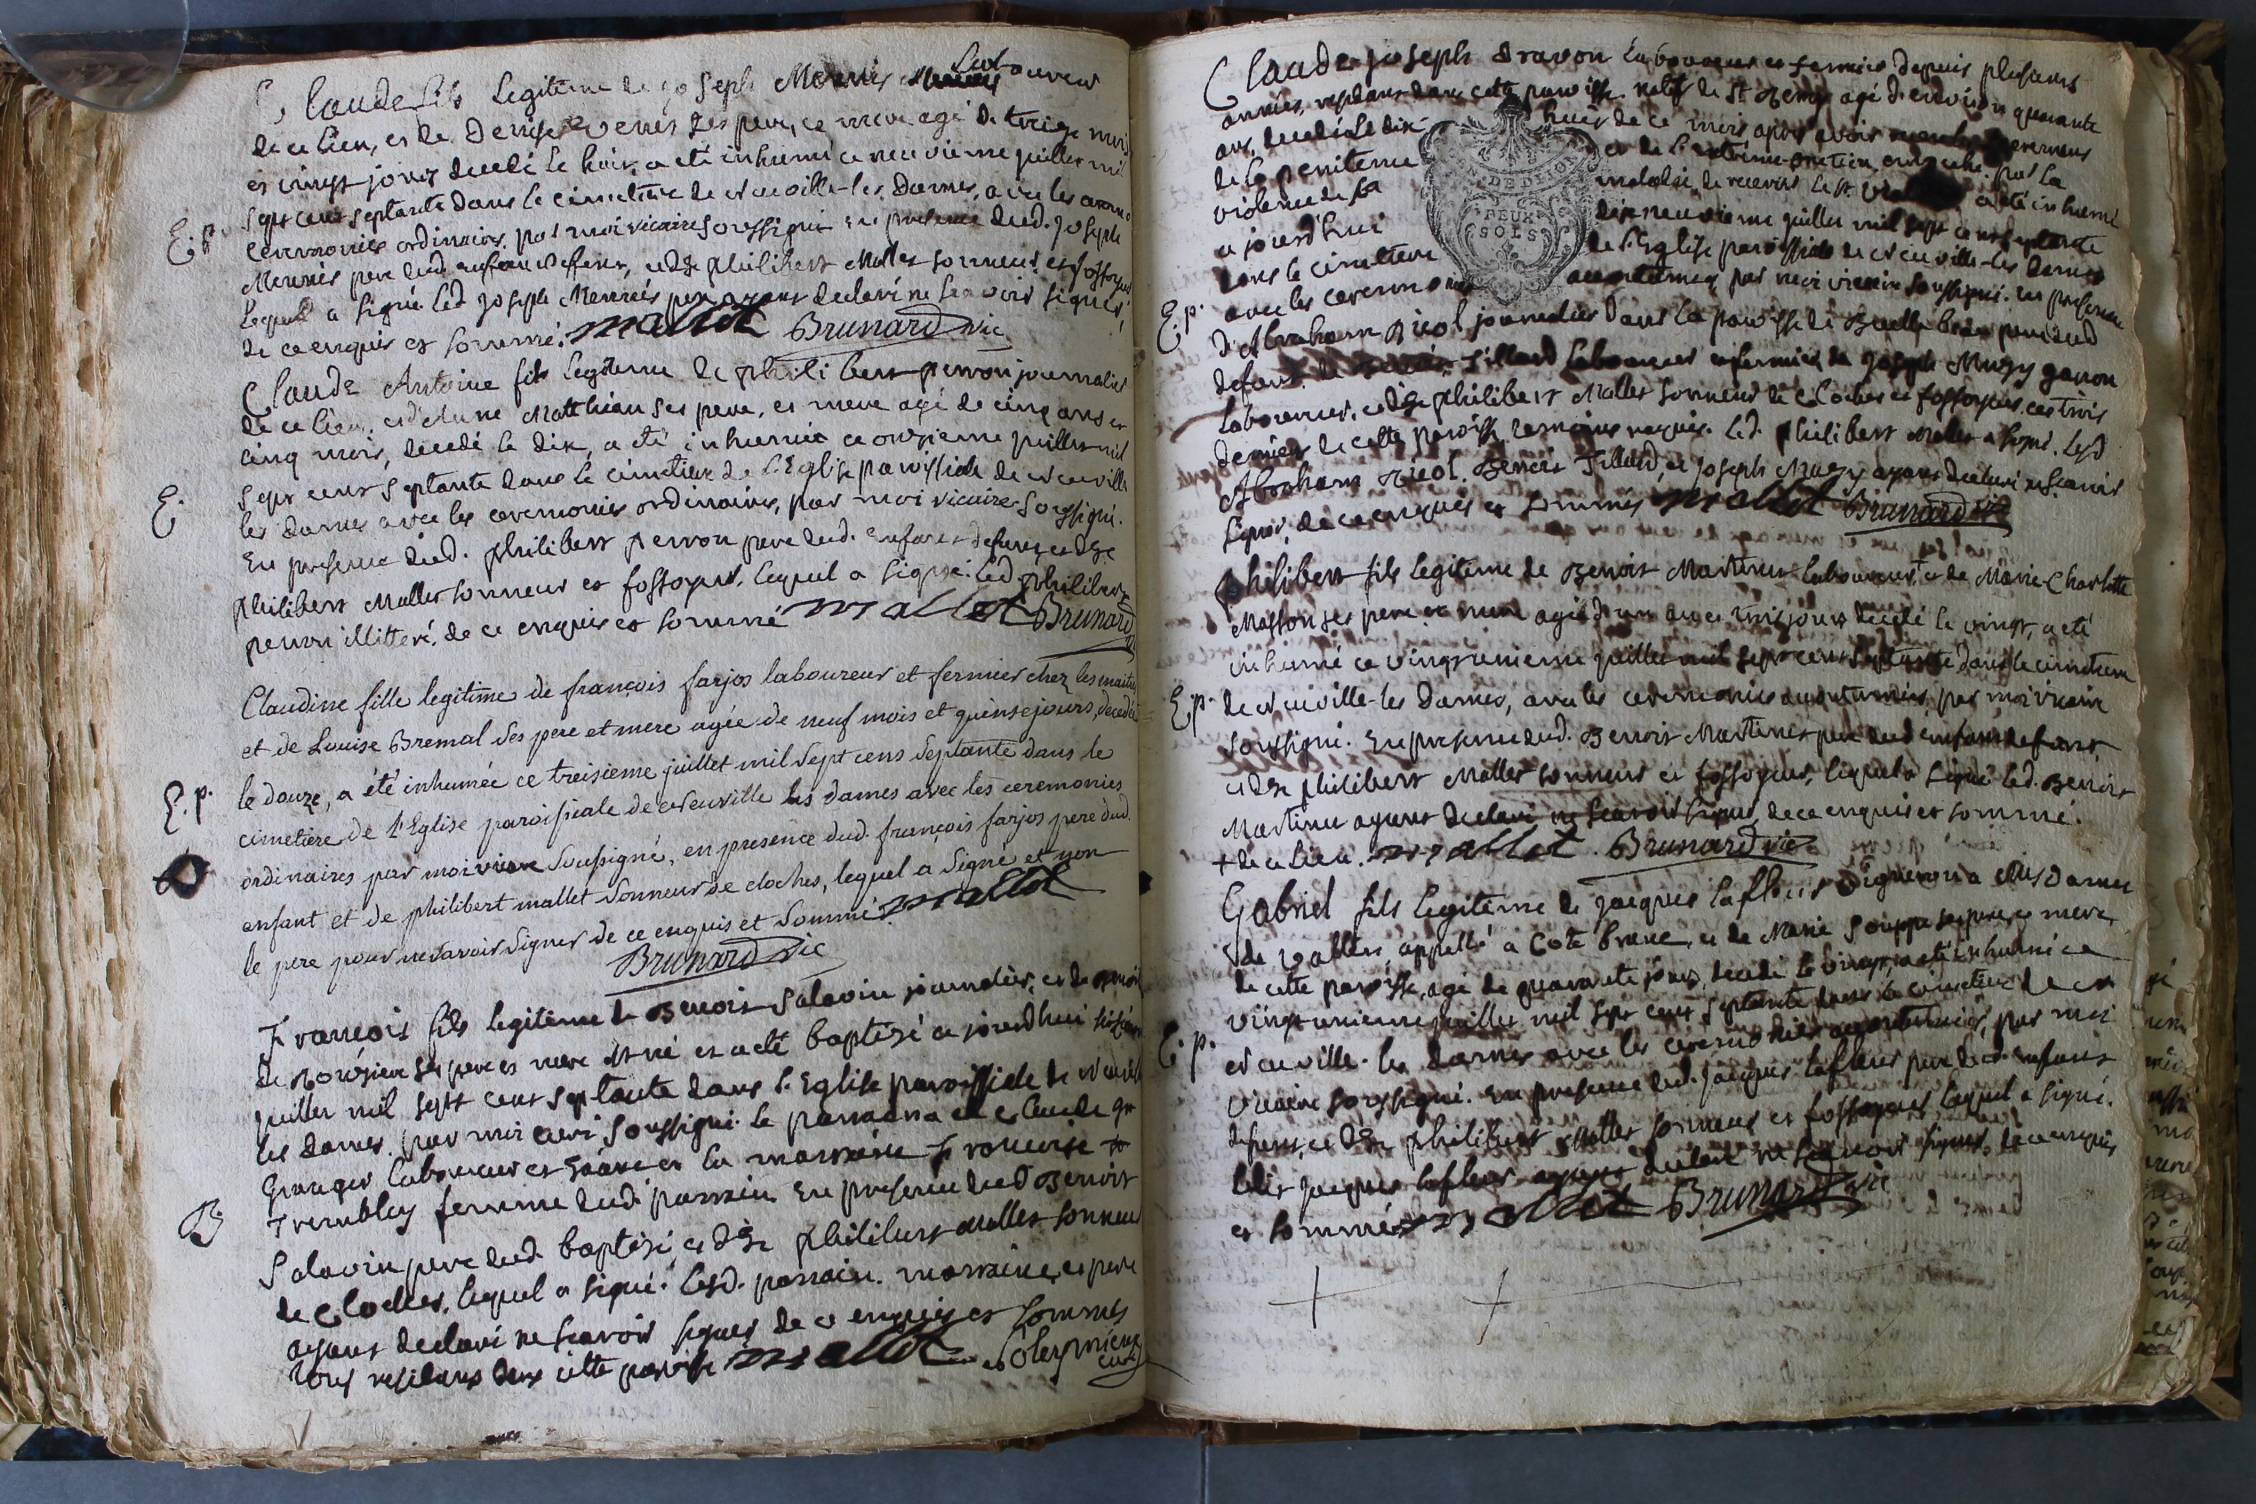 Claude fils legitime de joseph Mermés Laboureur
de ce lieu, et de Denise venet ses pere, et mere agé de treize mois
et vingt jours decedé le huit, a eté inhumé ce neuvieme juillet mil
sept cent septante dans le cimetiere de neuville-les-Dames, avec les
E. p. ceremonies ordinaires, par moi vicaire soussigné en presence dud. joseph
Mermés pere dud. enfant defunt, et de philibert Mallet sonneur et fossoyeur
lequel a signé led. joseph Mermés pere ayant declaré ne scavoir signer,
de ce enquis et sommé. mallet Brunard vic
Claude Antoine fils legitime de philibert perron journalier
de ce lieu, et d'etiene Matthieu ses pere, et mere agé de cinq ans et
cinq mois, decedé le dix, a eté inhumé ce onzieme juillet mil
E. sept cent septante dans le cimetiere de l'Eglise paroissiale de neuville
les dames avec les ceremonies ordinaires, par moi vicaire soussigné.
En presence dud. philibert perron pere dud. enfant defunt, et de
philibert Mallet sonneur et fossoyeur, lequel a signé. led philibert
perron illitteré, de ce enquis et sommé mallet Brunard
Claudine fille legitime de françois farjos laboureur et fermier chez les maitres
et de Louise Bremal ses pere et mere agée de neuf mois et quinse jours, decedée
E. p. le douze, a été inhumée ce treisieme juillet mil sept cens septante dans le
cimetiere de l'Eglise paroissiale de neuville les dames avec les ceremonies
ordinaires par moi vicaire soussigné, en presence dud. françois farjos pere dud.
enfant et de philibert mallet sonneur de cloches, lequel a signé et non
le pere pour ne savoir signer de ce enquis et sommé. mallet
Brunard vic
François fils legitime de Benoit Salavin journalier, et de
ses pere et mere est né et a eté baptizé ce jourdhui
juillet mil sept cent septante dans l'Eglise paroissiale de neuville
les Dames, par moi curé soussigné. le parrain a eté claude
Granger laboureur et la marraine Francoise
B. Tremblay femme dud. parrain En presence dud Benoit
Salavin pere dud. baptizé, et de philibert Mallet sonneur
de cloches, lequel a signé. Lesd. parrain. marraine, et pere
ayant declaré ne scavoir signer de ce enquis et sommés
tous residants dans cette paroisse mallet
curé
Claude-joseph Dravon laboureur et fermier depuis plusieurs
années, residant dans cette paroisse natif de St Remy agé d'environ quarante
ans, decedé le dix huit de ce mois apres avoir
de la penitence et de l'extreme-onction, empeché par la
violence de sa maladie de recevoir le st a eté inhumé
N. DE DIJON
DEUX
SOLS
ajourd'hui dix neuvieme juillet mil sept cent septante
dans le cimetiere de l'Eglise paroissiale de neuville-les Dames
E. p. avec les ceremonies accoutumées par moi vicaire soussigné. En presence
d'Abraham Nicol journalier dans la paroisse de
defunt de Tilland laboureur et fermier de joseph Mugy
laboureur, et de philibert Mallet sonneur de Cloches et fossoyeur, ces trois
derniers de cette paroisse temoins requis. Led. philibert Mallet a signé. Lesd
Abraham Nicol. Benoit Tilland, et joseph Mugy ayant declaré ne scavoir
signer, de ce enquis et sommés mallet Brunard vic
Philibert fils legitime de Benoit Martinet laboureur + et de Marie-Charlotte
Masson ses pere et mere agé d'un an et trois jours decedé le vingt, a eté
inhumé ce vingt unieme juillet mil sept cent septante dans le cimetiere
E. p. de neuville-les Dames, avec les ceremonies accoutumées, par moi vicaire
soussigné. En presence dud. Benoit Martinet pere dud enfant defunt,
et de philibert Mallet sonneur et fossoyeur, lequel a signé. led. Benoit
Martinet ayant declaré ne scavoir signer, de ce enquis et sommé.
+ de ce lieu. mallet Brunard vic
Gabriel fils legitime de jacques lafleur vigneron a Mes Dames
appellé a Cote brune, et de Marie Souppe ses pere et mere,
de cette paroisse, agé de quarante jours, decedé le vingt, a eté inhumé ce
vingt unieme juillet mil sept cent septante dans le cimetiere de
E. p. neuville-les Dames avec les ceremonies accoutumées, par moi
vicaire soussigné. En presence dud. jacques lafleur pere dud. enfant
defunt, et de philibert Mallet sonneur et fossoyeur lequel a signé.
ledit jacques lafleur ayant declaré ne scavoir signer, de ce enquis
et sommé mallet Brunard vic